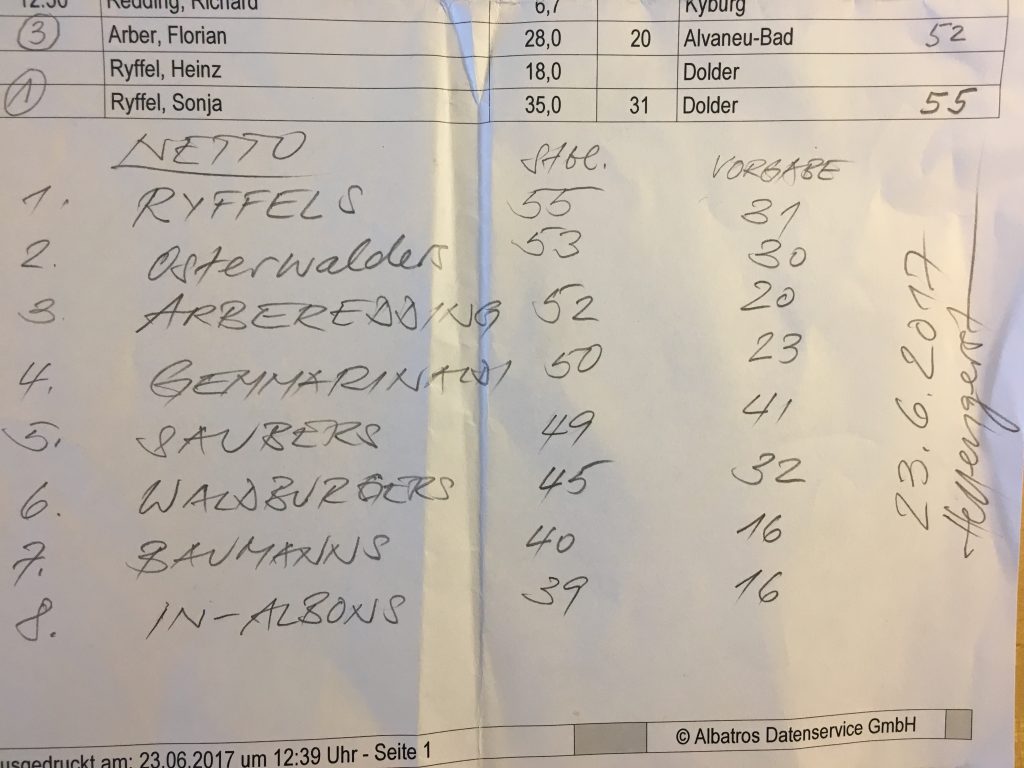 12:30 Redding, Richard 6,7 Kyburg
3 Arber, Florian 28,0 20 Alvaneu-Bad 52
Ryffel, Heinz 18,0 Dolder
1 Ryffel, Sonja 35,0 31 Dolder 55
NETTO Stbl. VORGABE
1. RYFFELS 55 31
2. Osterwalders 53 30
3. ARBEREDDING 52 20
4. GEMMARINALDI 50 23
5. SAUBERS 49 41
6. WALDBURGERS 45 32
7. BAUMANNS 40 16
8. IN-ALBONS 39 16
23.6.2017
© Albatros Datenservice GmbH
usgedruckt am: 23.06.2017 um 12:39 Uhr - Seite 1